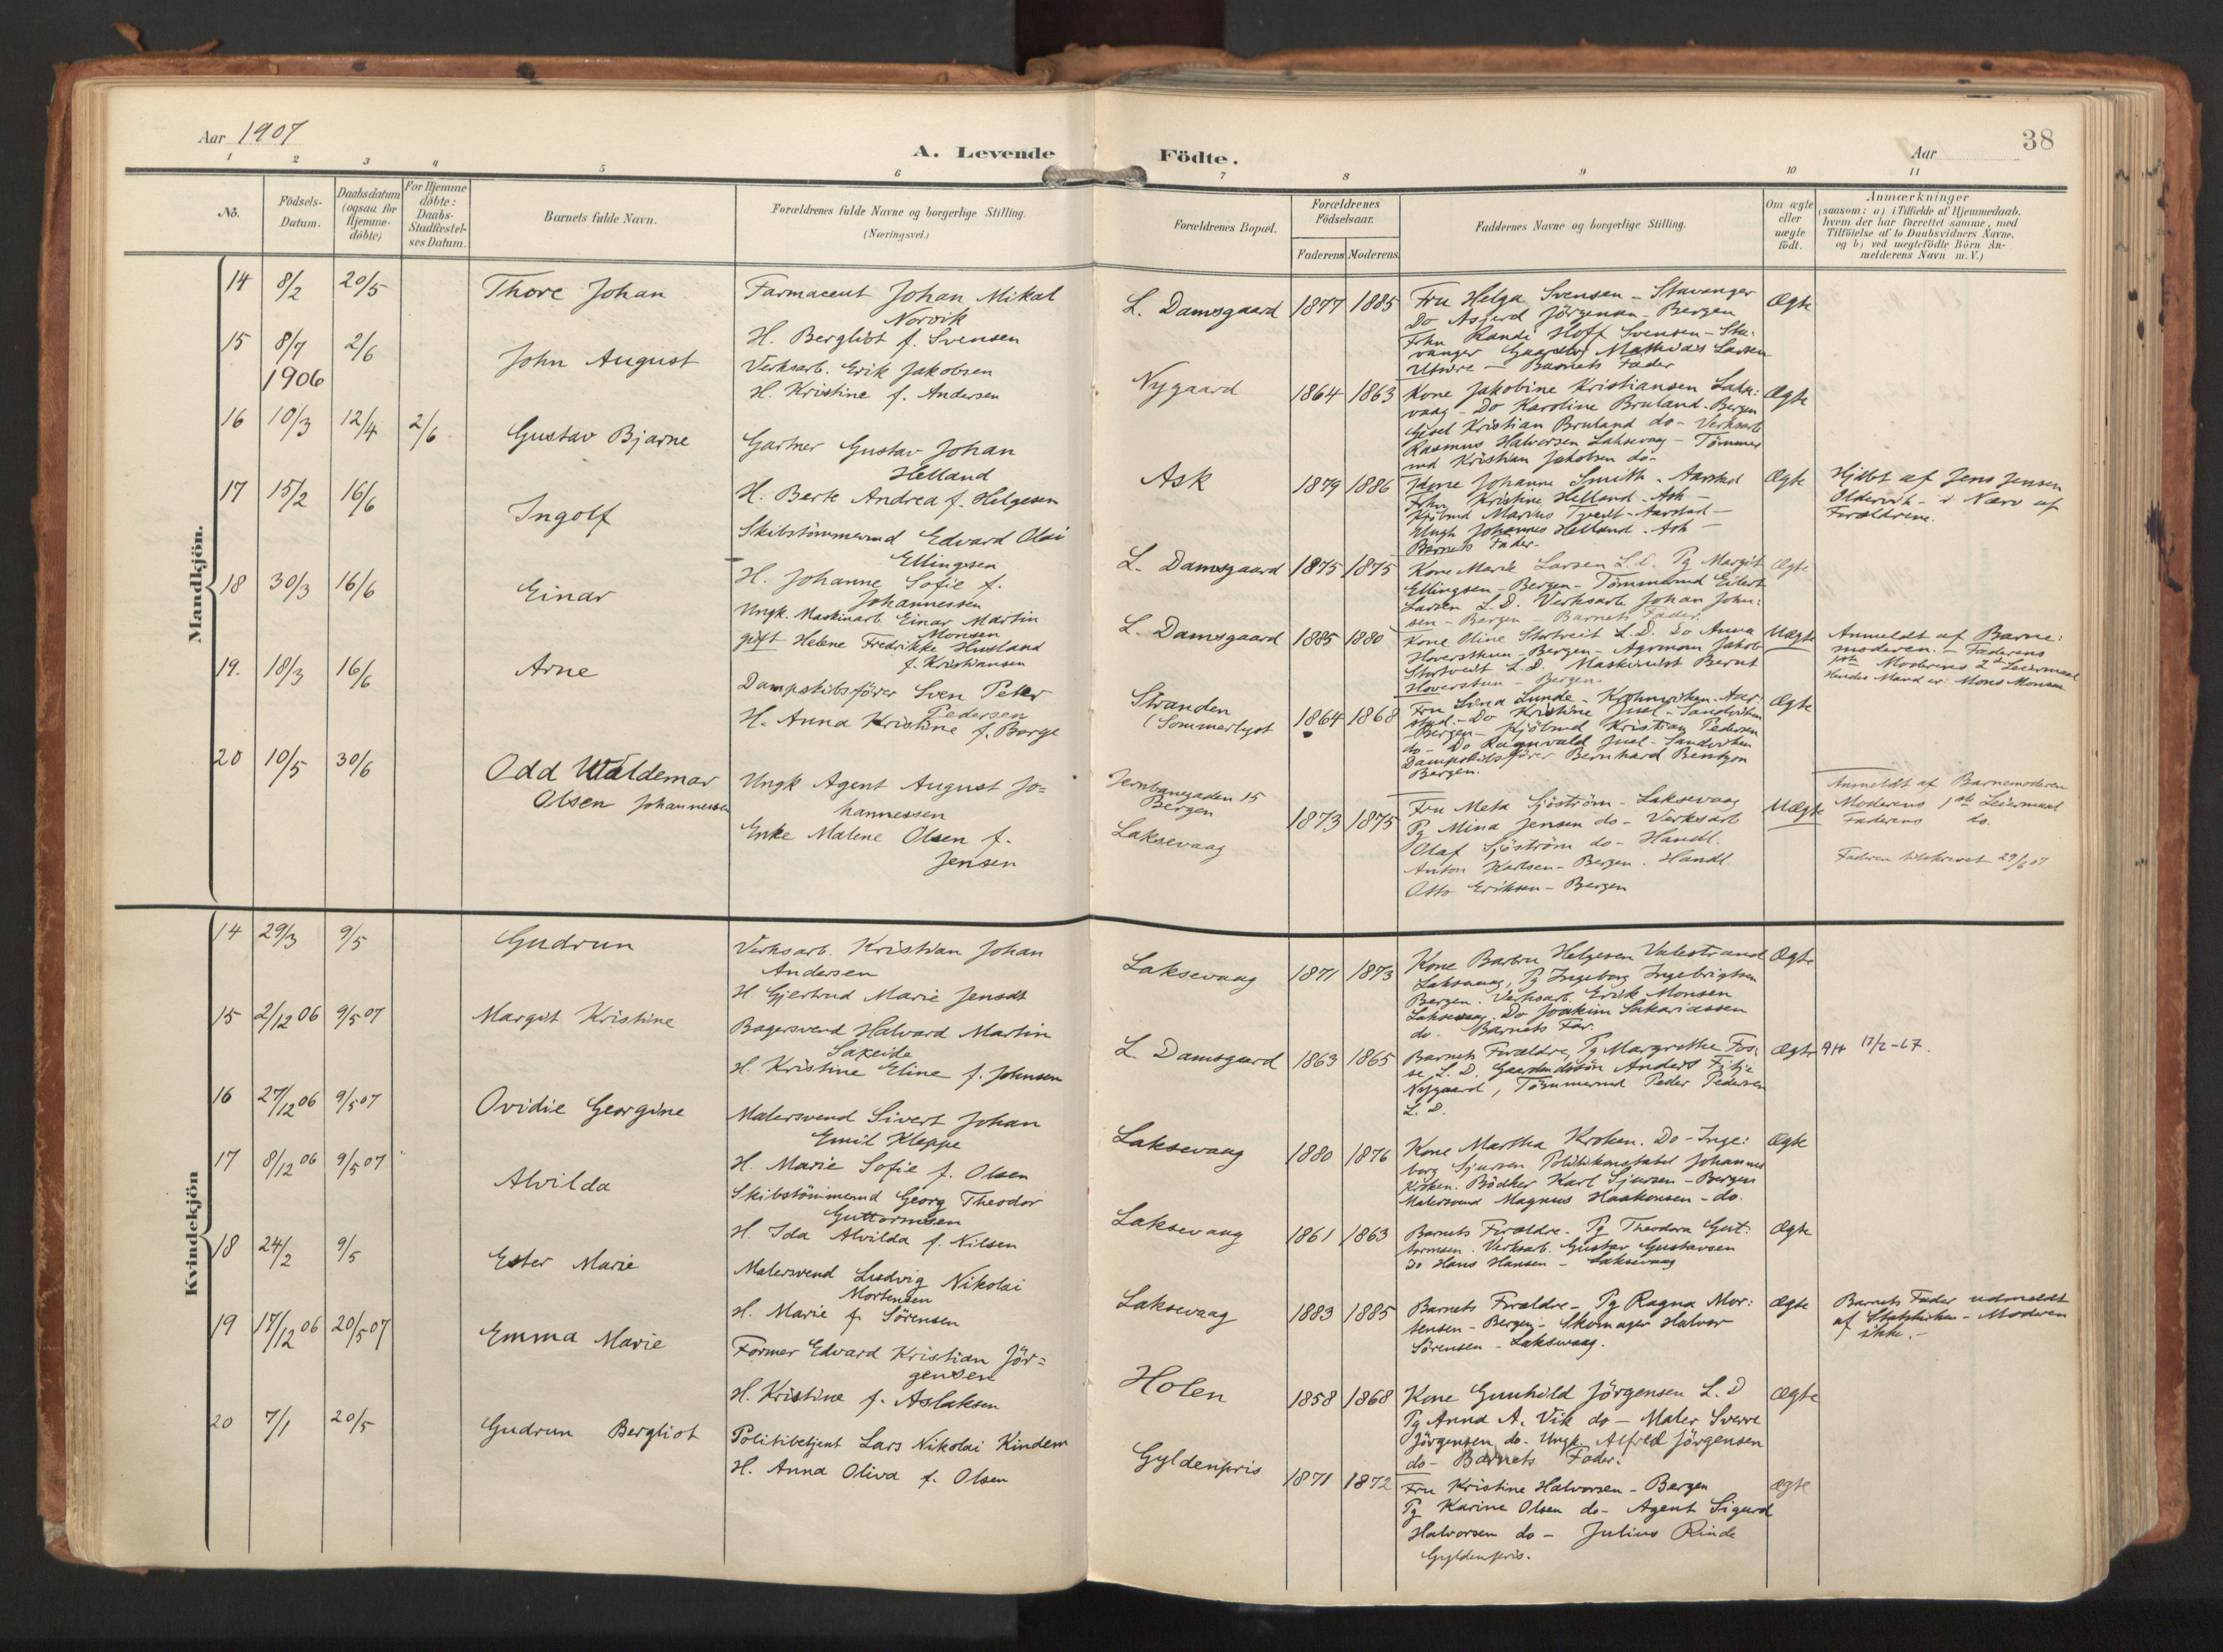 Aar 1907
A. Levende
Födte.
Aar
38
1 2 3 4 5 6 7 8 9 10 11
No.
Födsels-
Datum.
Daabsdatum
(ogsaa for
Hjemme-
döbte)
For Hjemme
döbte:
Daabs-
Stadfæstel-
ses Datum.
Barnets fulde Navn.
Forældrenes fulde Navne og borgerlige Stilling.
(Næringsvei.)
Forældrenes Bopæl.
Forældrenes
Födselsaar.
Faderens Moderens
Faddernes Navne og borgerlige Stilling.
Om ægte
eller
uægte
födt.
Anmærkninger
(saasom: a) i Tilfælde af Hjemmedaab,
hvem der har forrettet samme, med
Tilföielse af to Daabsvidners Navne,
og b) ved uægtefödte Börn An-
melderens Navn m. V.)
Mandkjön.
14 8/2 20/5 Thore Johan
Farmaceut Johan Mikal
Norvik
H. Bergliot f. Svensen
L. Damsgaard 1877 1885
Fru Helga Svensen - Stavanger
Do Asferd Jörgensen - Bergen
Frkn Randi Hoff Svensen - Sta:
vanger Mathias Larsen
Utvire - Barnets Fader
Ægte
15 8/7 1906 2/6 John August
Verksarb. Erik Jakobsen
H. Kristine f. Andersen
Nygaard 1864 1863
Kone Jakobine Kristiansen Laks:
vaag - Do Karoline Bruland - Bergen
Kristian Bruland do - Verksarb
Rasmus Halvorsen Laksevaag - Tömmer
md Kristian Jakobsen do -
Ægte
16 10/3 12/4 2/6 Gustav Bjarne
Gartner Gustav Johan
Helland
H. Berte Andrea f. Helgesen
Ask 1879 1886
Johanne Smith - Aarstad
Frkn Kristine Helland - Ask -
Marius Tveit - Aarstad -
Ungk Johannes Helland - Ask -
Barnets Fader -
Ægte
Hjdöbt af Jens Jensen
Oldervik - i Nærv af
Forældrene.
17 15/2 16/6 Ingolf
Skibstömmermd Edvard Olai
Ellingsen
H. Johanne Sofie f.
Johannessen
L. Damsgaard 1875 1875
Kone Marie Larsen L. D. Pg Margit
Ellingsen - Bergen - Tömmermd Eilert
Larsen L. D. Verksarb Johan John:
sen - Bergen Barnets Fader.
Ægte
18 30/3 16/6 Einar
Ungk. Maskinarb Einar Martin
Monsen
gift Helene Fredrikke Husland
f. Kristiansen
L. Damsgaard 1885 1880
Kone Oline Stortveit L. D. Do Anna
Hoverstuen - Bergen - Agronom Jakob
Stortveit L. D. Maskinist Bernt
Hoverstuen - Bergen.
Uægte
Anmeldt af Barne:
moderen. - Faderens
1ste Moderens 2det Leiermaal
Hendes Mand er Mons Monsen
19. 18/3 16/6 Arne
Dampskibsförer Sven Peter
Pedersen
H. Anna Kristine f. Borge
Stranden
(Sommerlyst 1864 1868
Fru Lina Lunde - Kronviken - Aar:
stad. - Do Kristine Juel - Sandviken
- Bergen - Kjöbmd Kristian Pedersen
do - Do Ragnvald Juel - Sandviken
Dampskibsförer Bernhard Bentzon
Bergen.
Ægte
20 10/5 30/6 Odd Waldemar
Olsen Johannessen
Ungk Agent August Jo=
hannessen
Enke Malene Olsen f.
Jensen
Jernbanegaden 15
Bergen
Laksevaag 1873 1875
Fru Meta Sjöström - Laksevaag
Pg Mina Jensen do - Verksarb
Olaf Sjöström do - Handl.
Anton Karlsen - Bergen. Handl.
Otto Eriksen - Bergen
Uægte
Anmeldt af Barnemoderen
Moderens 1ste Leiermaal
Faderens do.
Faderen tilskrevet 29/6 07
Kvindekjön
14 29/3 9/5 Gudrun
Verksarb. Kristian Johan
Andersen
H. Gjertrud Marie Jensdt
Laksevaag 1871 1873
Kone Barbru Helgesen Valestrand
Laksevaag, Pg Ingeborg Ingebrigtsen
Bergen. Verksarb. Erik Monsen
Laksevaag. Do Joakim Sakariassen
do. Barnets Far.
Ægte
15 2/12 06 9/5 07 Margit Kristine
Bagersvend Halvard Martin
Saxeide
H. Kristine Eline f. Johnsen
L. Damsgaard 1863 1865
Barnets Forældre, Pg Margrethe Fos:
se, L. D. Anders Fitje
Nygaard, Tömmermd Peder Pedersen
L. D.
Ægte
17/2-27.
16 27/12 06 9/5 07 Ovidie Georgine
Malersvend Sivert Johan
Emil Kleppe
H. Marie Sofie f. Olsen
Laksevaag 1880 1876
Kone Martha Kroken. Do - Inge:
borg Sjursen Politikonstabel Johannes
Kroken. Bödker Karl Sjursen - Bergen
Malersvend Magnus Haakonsen - do.
Ægte
17 8/12 06 9/5 07 Alvilda
Skibstömmermd Georg Theodor
Guttormsen
H. Ida Alvilda f. Nilsen
Laksevaag 1861 1863
Barnets Forældre. Pg Theodora Gut:
tormsen. Verksarb. Gustav Gustavsen
Do Hans Hansen - Laksevaag
Ægte
18 24/2 9/5 Ester Marie
Malersvend Ludvig Nikolai
Mortensen
H. Marie f. Sörensen
Laksevaag 1883 1885
Barnets Forældre - Pg Ragna Mor:
tensen - Bergen - Skomager Halvor
Sörensen - Laksevaag.
Ægte
Barnets Fader udmeldt
af Statskirken - Moderen
ikke. -
19 17/12 06 20/5 07 Emma Marie
Former Edvard Kristian Jör=
gensen
H. Kristine f. Aslaksen
Holen 1858 1868
Kone Gunhild Jörgensen L. D
Pg Anna A. Vik do - Maler Sverre
Jörgensen do. Ungk Alfred Jörgensen
do - Barnets Fader.
Ægte
20 7/1 20/5 Gudrun Bergliot
Politibetjent Lars Nikolai Kindem
H. Anna Oliva f. Olsen
Gyldenpris 1871 1872
Fru Kristine Halvorsen - Bergen
Pg Karine Olsen do - Agent Sigurd
Halvorsen do - Julius Rinde
Gyldenpris.
Ægte